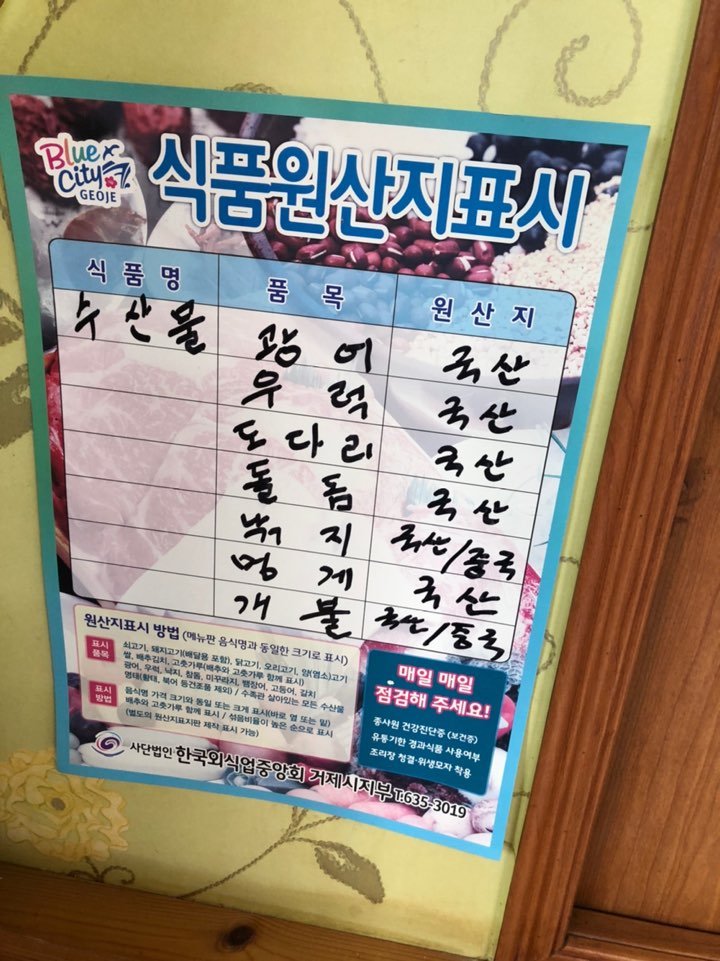 Blue City GEOJE
식품원산지표시
식품명 품목 원산지
수산물 광어 국산
우럭 국산
도다리 국산
돌돔 국산
낙지 국산/중국
멍게 국산
개불 국산/중국
원산지표시 방법 (메뉴판 음식명과 동일한 크기로 표시)
표시품목
쇠고기, 돼지고기(배달용 포함), 닭고기, 오리고기, 양(염소)고기
쌀, 배추김치, 고춧가루(배추와 고춧가루 함께 표시)
광어, 우럭, 낙지, 참돔, 미꾸라지, 뱀장어, 고등어, 갈치
명태(황태, 북어 등건조품 제외) / 수족관 살아있는 모든 수산물
표시방법
음식명 가격 크기와 동일 또는 크게 표시(바로 옆 또는 밑)
배추와 고춧가루 함께 표시 / 섞음비율이 높은 순으로 표시
(별도의 원산지표지판 제작 표시 가능)
매일 매일
점검해 주세요!
종사원 건강진단증 (보건증)
유통기한 경과식품 사용여부
조리장 청결·위생모자 착용
사단법인 한국외식업중앙회 거제시지부 T.635-3019